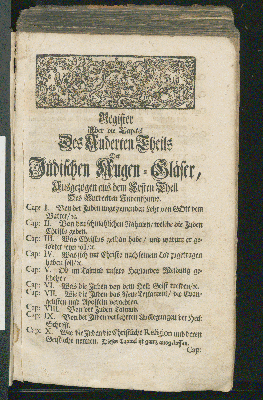 Register
Uber die Capitel
Des Anderten Theils
Der
Jüdischen Augen-Gläser,
Ausgezogen aus dem Ersten Theil
Des Entdeckten Judenthums.
Cap: I. Von der Juden ungeziemender Lehr von GOtt dem
Vatter/ꝛc.
Cap: II. Von den schmählichen Nahmen/ welche die Juden
Christo geben.
Cap: III. Was Christus gethan habe/ und warum er ge-
Cap: IV. Was sich mit Christo nach seinem Tod zugetragen
haben soll/ꝛc.
Cap: V. Ob im Talmud unsers Heylandes Meldung ge-
schehe/ꝛc.
Cap: VI. Was die Juden von dem Heil. Geist halten/ꝛc.
Cap: VII. Wie die Juden das Neue Testament/ die Evan-
gelisten und Apostlen verachten.
Cap: VIII. Von der Juden Talmud.
Cap: IX. Von der Juden verkehrten Auslegung der Heil.
Schrifft.
Cap: X. Wie die Juden die Christliche Religion und deren
Geistliche nennen. Dieses Capitel ist gantz ausgelassen.
Cap: